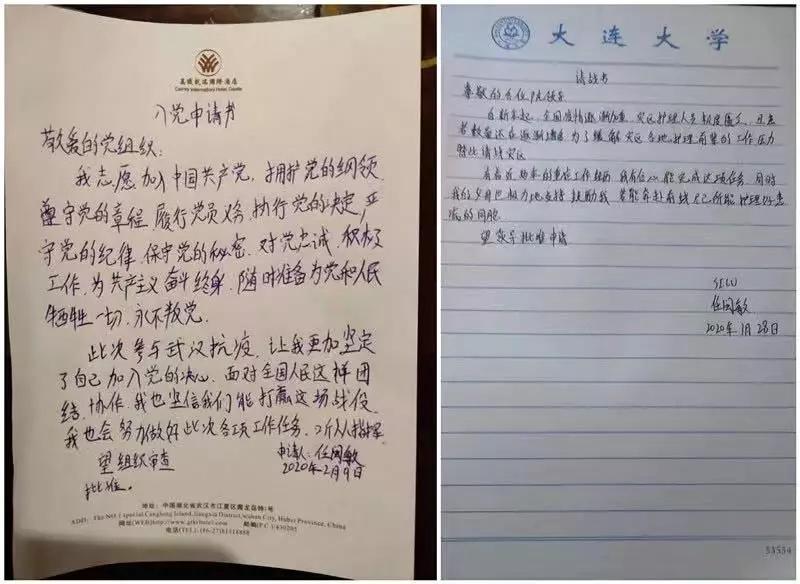 Gantry International Hotel Gaotie
入党申请书
敬爱的党组织:
我志愿加入中国共产党,拥护党的纲领,
遵守党的章程,履行党员义务,执行党的决定,严
守党的纪律,保守党的秘密,对党忠诚,积极
工作,为共产主义奋斗终身,随时准备为党和人民
牺牲一切,永不叛党。
此次参与武汉抗疫,让我更加坚定
了自己加入党的决心,面对全国人民这样团
结、协作,我也坚信我们能打赢这场战役,
我也会努力做好此次各项工作任务,听从指挥。
望组织审查
批准。
申请人:任国敏
2020年2月9日
地址:中国湖北省武汉市江夏区藏龙岛特1号
ADD: The NO.1 special Canglong Island, Jiangxia District, wuhan City, Hubei Province, China
邮编(P.C.):430205
大连大学
请战书
尊敬的各位院领导
自新年起,全国疫情逐渐加重,灾区护理人员
者数量还在逐渐增加,为了缓解灾区各地护理前辈的工作压力
特此请战灾区
有着近两年的重症工作经历,我有信心能完成这项任务,同时
我的父母也极力地支持、鼓励我,若能奔赴前线,尽己所能护理好患
病的同胞
望领导批准申请
SICU
任国敏
2020年1月28日
53554